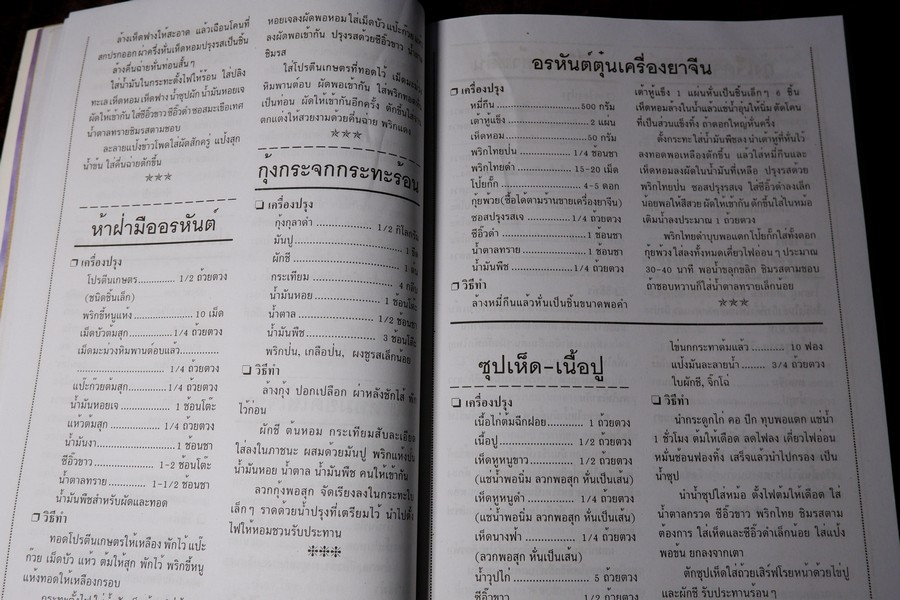 ล้างเห็ดฟางให้สะอาด แล้วเฉือนโคนที่
สกปรกออก ผ่าครึ่งหั่นเห็ดหอมปรุงรสเป็นชิ้น
ล้างคื่นฉ่ายหั่นท่อนสั้นๆ
ใส่น้ำมันในกระทะตั้งไฟให้ร้อน ใส่ปลิง
ทะเล เห็ดหอม เห็ดฟาง น้ำซุปผัก น้ำมันหอยเจ
ผัดให้เข้ากัน ใส่ซีอิ๊วขาว ซีอิ๊วดำ ซอสมะเขือเทศ
น้ำตาลทรายชิมรสตามชอบ
ละลายแป้งข้าวโพดใส่ผัดสักครู่ แป้งสุก
น้ำข้น ใส่คื่นฉ่ายตักขึ้น
ห้าฝ่ามืออรหันต์
เครื่องปรุง
โปรตีนเกษตร............ 1/2 ถ้วยตวง
(ชนิดชิ้นเล็ก)
พริกขี้หนูแห้ง.................... 10 เม็ด
เม็ดบัวต้มสุก..............1/4 ถ้วยตวง
เม็ดมะม่วงหิมพานต์อบแล้ว..............
............................ 1/4 ถ้วยตวง
แปะก๊วยต้มสุก.............1/4 ถ้วยตวง
น้ำมันหอยเจ.................. 1 ช้อนโต๊ะ
แห้วต้มสุก.................. 1/4 ถ้วยตวง
น้ำมันงา........................... 1 ช้อนชา
ซีอิ๊วขาว..................... 1-2 ช้อนโต๊ะ
น้ำตาลทราย............. 1-1/2 ช้อนชา
น้ำมันพืชสำหรับผัดและทอด
วิธีทำ
ทอดโปรตีนเกษตรให้เหลือง พักไว้ แปะ
ก๊วย เม็ดบัว แห้ว ต้มให้สุก พักไว้ พริกขี้หนู
แห้งทอดให้เหลืองกรอบ
หอยเจลงผัดพอหอม ใส่เม็ดบัว แปะก๊วย
ลงผัดพอเข้ากัน ปรุงรสด้วยซีอิ๊วขาว
ชิมรส
ใส่โปรตีนเกษตรที่ทอดไว้ เม็ดมะม่วง
หิมพานต์อบ ผัดพอเข้ากัน ใส่พริกทอด
เป็นท่อน ผัดให้เข้ากันอีกครั้ง ตักขึ้นใส่จาน
ตกแต่งให้สวยงามด้วยคื่นฉ่าย พริกแดง
กุ้งกระจกกระทะร้อน
เครื่องปรุง
กุ้งกุลาดำ ...................... 1/2 กิโลกรัม
มันปู
ผักชี
กระเทียม
น้ำมันหอย ...................... 1 ช้อนโต๊ะ
น้ำตาล ........................ 1/2 ช้อนชา
น้ำมันพืช...................... 3 ช้อนโต๊ะ
พริกป่น, เกลือป่น, ผงชูรสเล็กน้อย
วิธีทำ
ล้างกุ้ง ปอกเปลือก ผ่าหลังชักไส้ พัก
ไว้ก่อน
ผักชี ต้นหอม กระเทียมสับละเอียด
ใส่ลงในภาชนะ ผสมด้วยมันปู พริกแห้งป่น
น้ำมันหอย น้ำตาล น้ำมันพืช คนให้เข้ากัน
ลวกกุ้งพอสุก จัดเรียงลงในกระทะใบ
เล็กๆ ราดด้วยน้ำปรุงที่เตรียมไว้ นำไปตั้ง
ไฟให้หอมชวนรับประทาน
อรหันต์ตุ๋นเครื่องยาจีน
เครื่องปรุง
หมี่กึน............................. 500 กรัม
เต้าหู้แข็ง............................. 2 แผ่น
เห็ดหอม.............................50 กรัม
พริกไทยป่น ................. 1/4 ช้อนชา
พริกไทยดำ.................. 15-20 เม็ด
โป๊ยกั๊ก ......................... 4-5 ดอก
กุ้ยพ้วย(ซื้อได้ตามร้านขายเครื่องยาจีน)
ซอสปรุงรสเจ............... 1/4 ถ้วยตวง
ซีอิ๊วดำ ........................... 1 ช้อนชา
น้ำตาลทราย...................... 1 ช้อนชา
น้ำมันพืช.....................1/4 ถ้วยตวง
วิธีทำ
ล้างหมี่กึนแล้วหั่นเป็นชิ้นขนาดพอคำ
เต้าหู้แข็ง 1 แผ่นหั่นเป็นชิ้นเล็กๆ 6 ชิ้น
เห็ดหอมล้างในน้ำแล้วแช่น้ำอุ่นให้นิ่ม ตัดโคน
ที่เป็นส่วนแข็งทิ้ง ถ้าดอกใหญ่หั่นครึ่ง
ตั้งกระทะใส่น้ำมันพืชลง นำเต้าหู้ที่หั่นไว้
ลงทอดพอเหลืองตักขึ้น แล้วใส่หมี่กึนและ
เห็ดหอมลงผัดในน้ำมันที่เหลือ ปรุงรสด้วย
พริกไทยป่น ซอสปรุงรสเจ ใส่ซีอิ๊วดำลงเล็ก
น้อยพอให้สีสวย ผัดให้เข้ากัน ตักขึ้นใส่ในหม้อ
เติมน้ำลงประมาณ 1 ถ้วยตวง
พริกไทยดำบุบพอแตก โป๊ยกั๊กใส่ทั้งดอก
กุ้ยพ้วง ใส่ลงทั้งหมดเคี่ยวไฟอ่อนๆ ประมาณ
30-40 นาที พอน้ำขลุกขลิก ชิมรสตามชอบ
ถ้าชอบหวานก็ใส่น้ำตาลทรายเล็กน้อย
ซุปเห็ด-เนื้อปู
เครื่องปรุง
เนื้อไก่ต้มฉีกฝอย............ 1 ถ้วยตวง
เนื้อปู........................ 1/2 ถ้วยตวง
เห็ดหูหนูขาว............... 1/2 ถ้วยตวง
(แช่น้ำพอนิ่ม ลวกพอสุก หั่นเป็นเส้น)
เห็ดหูหนูดำ ................ 1/4 ถ้วยตวง
(แช่น้ำพอนิ่ม ลวกพอสุก หั่นเป็นเส้น)
เห็ดนางฟ้า ................. 1/4 ถ้วยตวง
(ลวกพอสุก หั่นเป็นเส้น)
น้ำซุปไก่....................... 5 ถ้วยตวง
ซีอิ๊วขาว
ไข่นกกระทาต้มแล้ว .......... 10 ฟอง
แป้งมันละลายน้ำ ........ 3/4 ถ้วยตวง
ใบผักชี, จิ๊กโฉ่
วิธีทำ
นำกระดูกไก่ คอ ปีก ทุบพอแตก แช่น้ำ
1 ชั่วโมง ต้มให้เดือด ลดไฟลง เคี่ยวไฟอ่อน
หมั่นช้อนฟองทิ้ง เสร็จแล้วนำไปกรอง เป็น
น้ำซุป
นำน้ำซุปใส่หม้อ ตั้งไฟต้มให้เดือด ใส่
น้ำตาลกรวด ซีอิ๊วขาว พริกไทย ชิมรสตาม
ต้องการ ใส่เห็ดและซีอิ๊วดำเล็กน้อย ใส่แป้ง
พอข้น ยกลงจากเตา
ตักซุปเห็ดใส่ถ้วยเสิร์ฟโรยหน้าด้วยไข่ปู
และผักชี รับประทานร้อนๆ